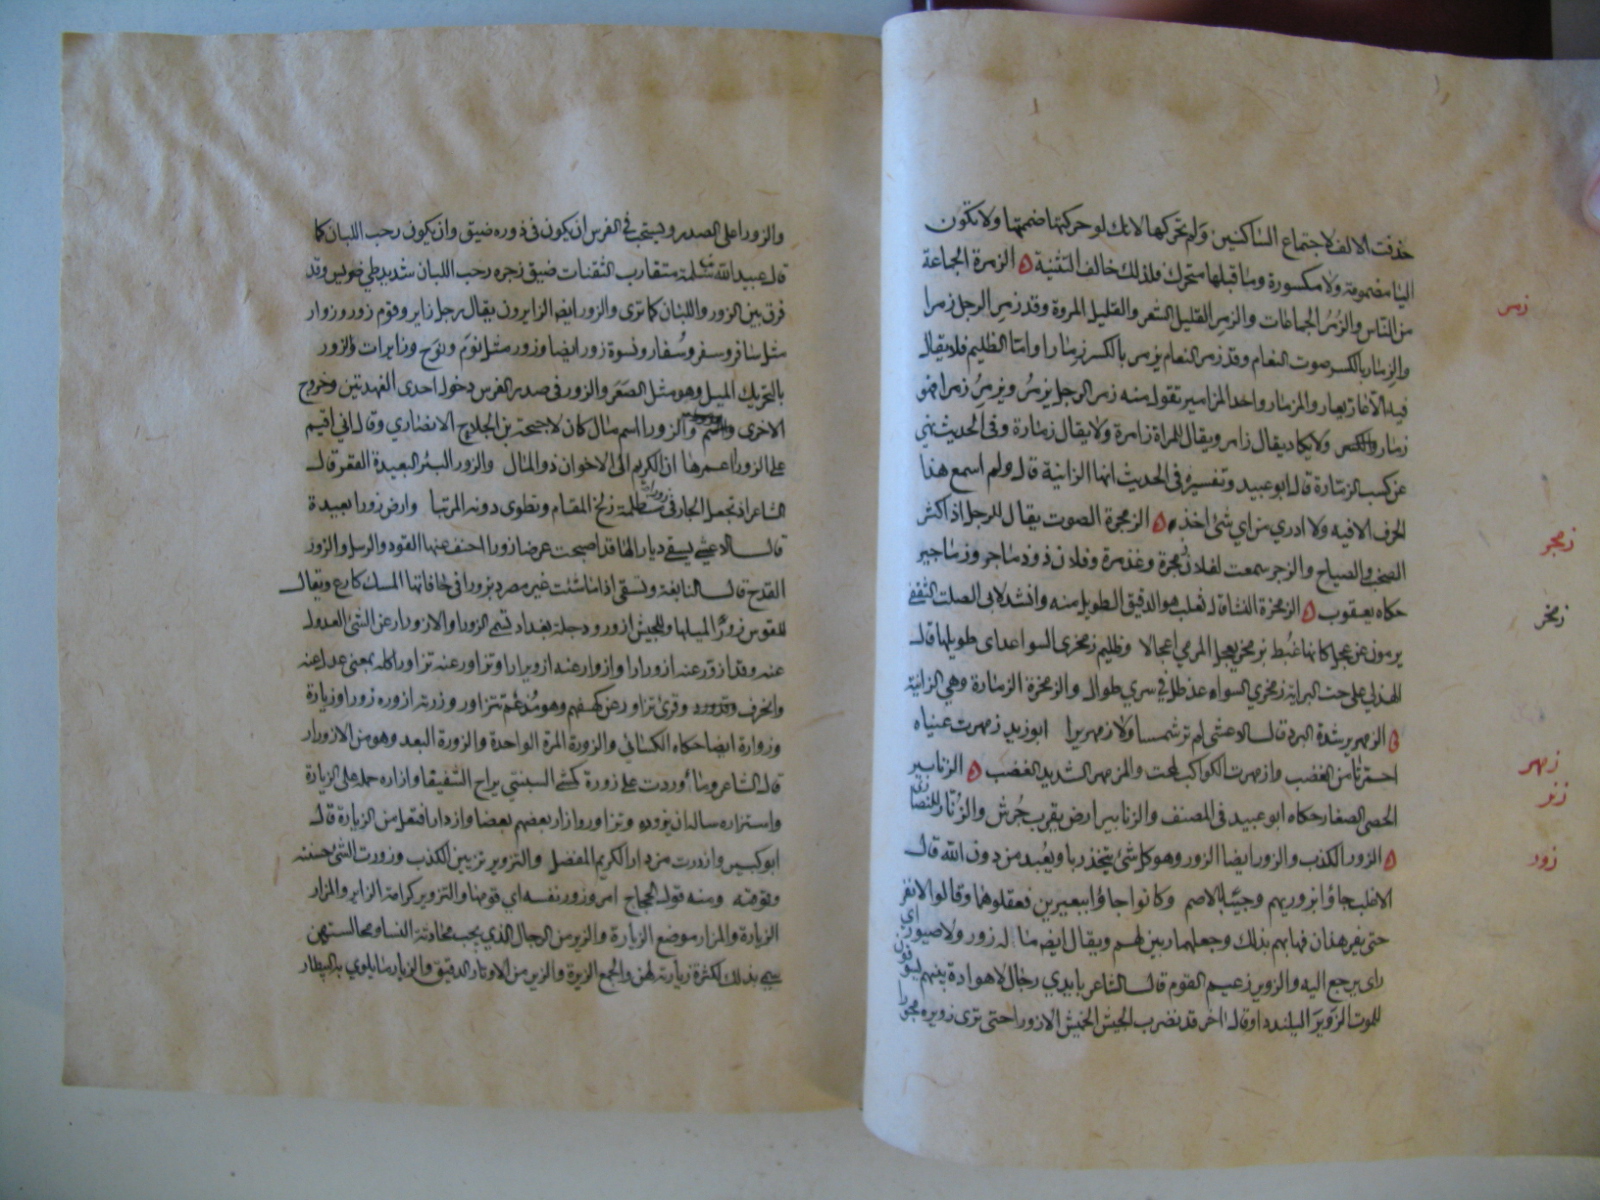 حذفت الالف لاجتماع الساكنين ولم تحركها لانك لو حركتها ضممتها ولا تكون
اليا مضمومة ولا مكسورة وما قبلها متحرك فلذلك خالف التثنية الزمرة الجماعة
زمر
من الناس والزمر الجماعات والزمر القليل الشعر والقليل المروة وقد زمر الرجل زمرا
والزمار بالكسر صوت النعام وقد زمر النعام يزمر بالكسر زمارا واما الظليم فلا يقال
فيه الا عار يعار والمزمار واحد المزامير تقول منه زمر الرجل يزمر ويزمر زمرا فهو
زمار ولا يكاد يقال زامر ويقال للمراة زامرة ولا يقال زمارة وفي الحديث نهي
عن كسب الزمارة قال ابو عبيد وتفسيره في الحديث انها الزانية قال ولم اسمع هذا
الحرف الا فيه ولا ادري من اي شئ اخذ الزمجرة الصوت يقال للرجل اذا اكثر
زمجر
الصخب والصياح والزجر سمعت لفلان زمجرة وغذمرة وفلان ذو زماجر وزماجير
حكاه يعقوب الزمخرة النشابة قال ثعلب هو الدقيق الطويل منه وانشد لابي الصلت الثقفي
زمخر
يرمون عن عجل كانها غبط بزمخر يعجل المرمي اعجالا وظليم زمخري السواعد اي طويلها قال
الهذلي على حت البراية زمخري السواعد ظل في سري طوال والزمخرة الزمارة وهي الزانية
الزمهرير شدة البرد قال الاعشى لم تر شمسا ولا زمهريرا ابو زيد زمهرت عيناه
زمهر
احمرتا من الغضب وازمهرت الكواكب لمحت والمزمهر الشديد الغضب الزنابير
زنر
الحصى الصغار حكاه ابو عبيد في المصنف والزنابير ارض بقرب جرش والزنار للنصارى
الزور الكذب والزور ايضا الزور وهو كل شئ يتخذ ربا ويعبد من دون الله قال
زور
الاغلب جاؤا بزوريهم وجئنا بالاصم وكانوا جاؤا ببعيرين فعقلوهما وقالوا لا نفر
حتى يفر هذان فعابهم بذلك وجعلهما ربين لهم ويقال ايضا ما له زور ولا صيور اي
راى يرجع اليه والزوير زعيم القوم قال الشاعر بايدي رجال لا هوادة بينهم يسوقون
للموت الزوير اليلنددا وقال اخر قد نضرب الجيش الخميس الازورا حتى ترى زويره مجورا
والزور اعلى الصدر ويستحب في الفرس ان يكون في زوره ضيق وان يكون رحب اللبان كما
قال عبيد الله بن سلمة متقارب الثفنات ضيق زوره رحب اللبان شديد طي ضريس وقد
فرق بين الزور واللبان كما ترى والزور ايضا الزايرون يقال رجل زاير وقوم زور وزوار
مثل سافر وسفر وسفار ونسوة زور ايضا وزور مثل نوم ونوح وزايرات والزور
بالتحريك الميل وهو مثل الصعر والزور في صدر الفرس دخول احدى الفهدتين وخروج
الاخرى والزورا اسم مال كان لاحيحة بن الجلاح الانصاري وقال اني اقيم
على الزورا اعمرها ان الكريم الى الاخوان ذو المال والزور البئر البعيدة القعر قال
الشاعر اذ تجعل الجار في زورا مظلمة زلخ المقام وتطوى دونه المرسا وارض زورا بعيدة
قال الاعشى يسقي ديارا لها قد اصبحت عرضا زورا اجنف عنها القود والرسل والزور
القدح قال النابغة وتسقى اذا ما شئت غير مصرد بزورا في حافاتها المسك كارع ويقال
للقوس زورا لميلها وللجيش ازور ودجلة بغداد تسمى الزورا والازورار عن الشئ العدول
عنه وقد ازور عنه ازورارا وازوار عنه ازويرارا وتزاور عنه تزاورا كله بمعنى عدل عنه
وانحرف وقرئ تزاور عن كهفهم وهو مدغم تتزاور وزرته ازوره زورا وزيارة
وزوارة ايضا حكاه الكسائي والزورة المرة الواحدة والزورة البعد وهو من الازورار
قال الشاعر وما وردت على زورة كمشي السبنتي يراح الشفيفا وازاره حمله على الزيارة
واستزاره ساله ان يزوره وتزاوروا زار بعضهم بعضا وازدار افتعل من الزيارة قال
ابو كبير وازدرت مزدار الكريم المفضل والتزوير تزيين الكذب وزورت الشئ حسنته
وقومته ومنه قول الحجاج امر زور نفسه اي قومها والتزوير كرامة الزاير والمزار
الزيارة والمزار موضع الزيارة والزير من الرجال الذي يحب محادثة النسا ومجالستهن
سمي بذلك لكثرة زيارته لهن والجمع الزيرة والزير من الاوتار الدقيق والزيار ما يلوي به البيطار